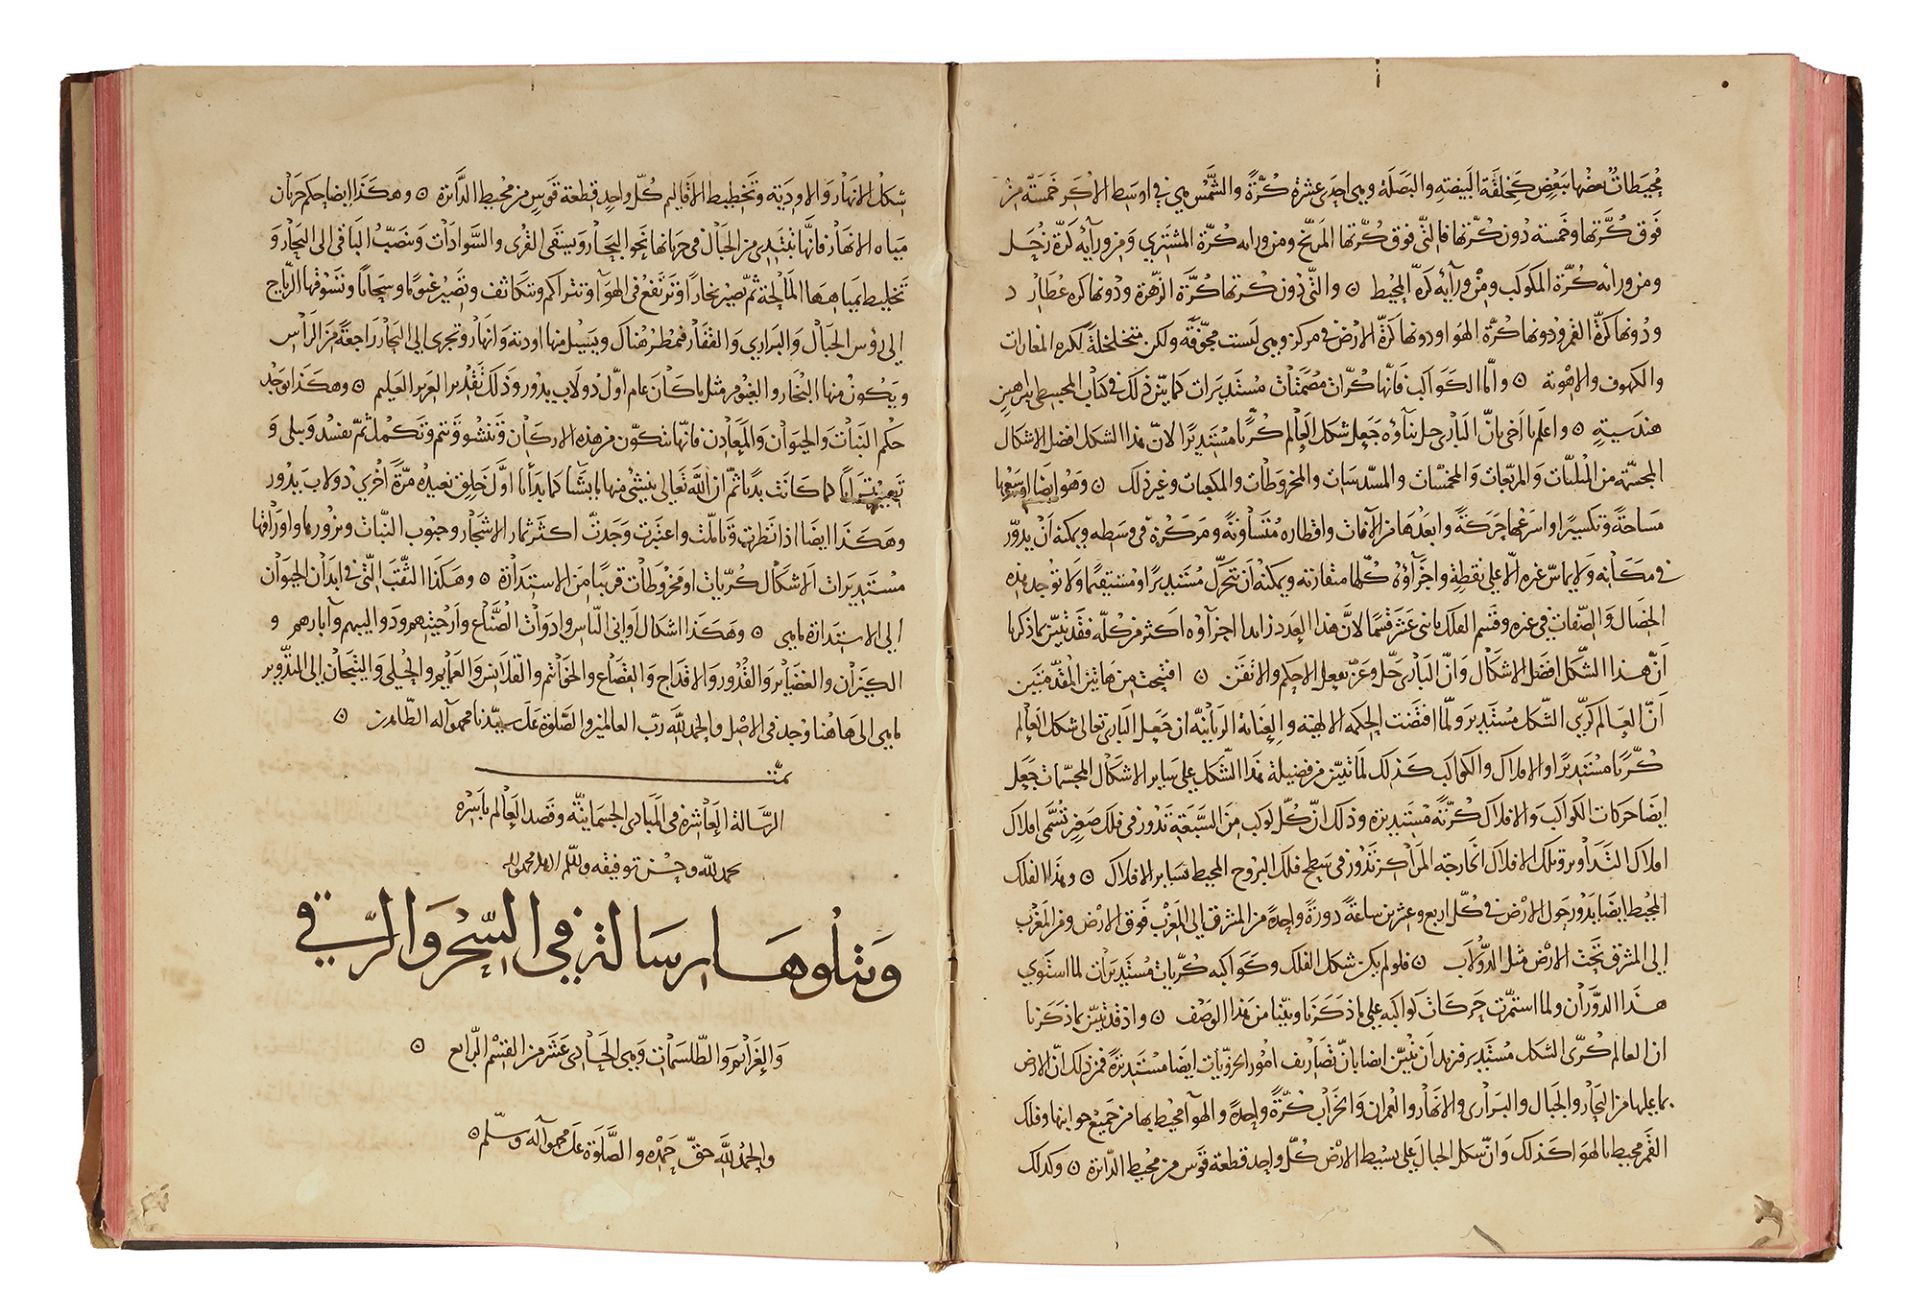 محيطات بعضها ببعض كخلقة البيضة والبصلة وهي احدى عشرة كرّةً والشّمس هي في اوسط الاكر خمسة من
فوق كرّتها وخمسة دون كرّتها فالتّي فوق كرّتها المرّيخ ومن ورائه كرّة المشتري ومن ورآيه كرّة زحل
ومن ورائه كرّة الكواكب ومن ورآيه كرّة المحيط ⊙ والتّي دون كرتها كرّة الزّهرة ودونها كره عطارد
ودونها كرّة القمر ودونها كرّة الهوا ودونها كرّة الارض في مركز وهي ليست مجوّفة ولكن متخلخلة لكثرة المغارات
والكهوف والاهوية ⊙ وامّا الكواكب فانّها كرّات مصمتات مستديرات كما بيّن ذلك في كتاب المجسطي ببراهين
هندسيّة ⊙ واعلم يا اخي بانّ الباري جل ثناؤه جعل شكل العالم كرّيا مستديرًا لانّ هذا الشكل افضل الاشكال
المجسّمة من المثلثات والمربّعات والمخمّسات والمسدّسات والمخروطات والمكعبات وغير ذلك ⊙ وهو ايضا اوسعها
مساحةً وتكسيرا واسرعها حركةً وابعدها من الآفات واقطاره متساوية ومركزه في وسطه ويمكنه ان يدوّر
في مكانه ولا يماسّ غيره الّا على نقطة واجزآؤه كلّها متقاربة ويمكنه ان يتحرّك مستديرًا ومستقيما ولا توجد هذه
الخصال والصّفات في غيره وقسم الفلك باثنى عشر قسما لانّ هذا العدد زايد اجزآؤه اكثر من كلّه فقد تبيّن بما ذكرنا
انّ هذا الشّكل افضل الاشكال وانّ الباري جلّ وعزّ يفعل الاحكم والاتقن ⊙ افتتحت من هاتين المقدّمتين
انّ العالم كرّي الشّكل مستدير ولمّا اقتضت الحكمة الالهيّة والعناية الربّانيّة ان جعل الباري تعالى شكل العالم
كرّيّا مستديرًا والافلاك والكواكب كذلك لما تبيّن من فضيلة هذا الشّكل على ساير الاشكال المجسّمات جعل
ايضا حركات الكواكب والافلاك كرّيّة مستديرة وذلك انّ كلّ كوكب من السّبعة تدور في فلك صغير تسمّى افلاك
افلاك التداوير وتلك الافلاك الخارجة المراكز تدور في سطح فلك البروج المحيط بساير الافلاك ⊙ وهذا الفلك
المحيط ايضا يدور حول الارض في كلّ اربع وعشرين ساعة دورةً واحدةً من المشرق الى المغرب فوق الارض ومن المغرب
الى المشرق تحت الارض مثل الدّولاب ⊙ فلو لم يكن شكل الفلك وكواكبه كرّيات مستديرات لما استوي
هذا الدّوران ولما استمرّت حركات كواكبه على ما ذكرنا وبيّنا من هذا الوصف ⊙ واذ قد تبيّن بما ذكرنا
ان العالم كرّى الشكل مستدير فنريد ان نبيّن ايضا بانّ تصاريف امور الجزويّات ايضا مستديرة فمن ذلك انّ الارض
بما عليها من البحار والجبال والبراري والانهار والعمران والخراب كرّةً واحدةً والهوآ محيط بها من جميع جوانبها وفلك
القمر محيط بالهوا كذلك وانّ شكل الجبال على بسيط الارض كلّ واحد قطعة قوس من محيط الدّايرة ⊙ وكذلك
شكل الانهار والاودية وتخطيط الاقاليم كلّ واحدٍ قطعة قوس من محيط الدّايرة ⊙ وهكذا ايضا حكم جريان
مياه الانهار فانّها تبتدى من الجبال في جريانها نحو البحار ويسقى القرى والسّوادات وينصبّ الباقي الى البحار و
تختلط بمياهها المالحة ثمّ تصير بخارا وترتفع في الهوآ وتتراكم وتتكاثف وتصير غيوما وسحابًا وتسوقها الرّياح
الى رؤس الجبال والبراري والقفار فتمطر هناك ويسيل منها اودية وانهار وتجري الى البحار راجعةً من الرّأس
ويكون منها البخار والغيوم مثل ما كان عام اوّل دولاب يدور وذلك تقدير العزيز العليم ⊙ وهكذا يوجد
حكم النّبات والحيوان والمعادن فانّها تتكوّن من هذه الاركان وتنشو وتتم وتكمل ثمّ تفسد وبلى و
ترابًا كما كانت بديّا ثمّ ان الله تعالى ينشي منها ما يشآ كما بدأنا اوّل خلق نعيده مرّةً اخري دولاب يدور
وهكذا ايضا اذا نظرت وتاملت واعتبرت وجدتّ اكثر ثمار الاشجار وحبوب النّبات وبزورها واوراقها
مستديرات الاشكال كرّيات او مخروطات قريبا من الاستدارة ⊙ وهكذا الثّقب التّي في ابدان الحيوان
الى الاستدارة ما هي ⊙ وهكذا اشكال اواني النّاس وادوات الصّنّاع وارحيتهم ودواليبهم وآبارهم و
الكيزان والغضاير والقدور والاقداح والقصاع والخواتم والقلانس والعمايم والحلي والتيجان الى التّدوير
ما هي الى هاهنا وجد في الاصل والحمد لله ربّ العالمين والصّلوة على سيّدنا محمد وآله الطاهرين ⊙
تمّت
الرّسالة العاشرة في المبادى الجسمانيّة وقصد العالم باسره
بحمد لله وحسن توفيقه
وتتلوها رسالة في السّحر والرّقى
والعزايم والطّلسمات وهي الحادى عشر من القسم الرّابع ⊙
والحمد لله حقّ حمده والصّلوة على محمد وآله وسلّم ⊙